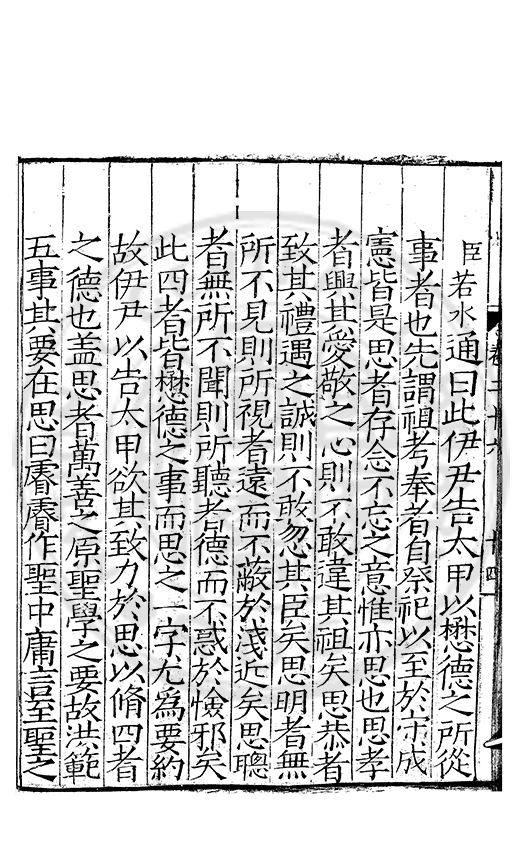 臣若水通曰此伊尹告太甲以懋德之所從
事者也先謂祖考奉者自祭祀以至於守成
憲皆是思者存念不忘之意惟亦思也思孝
者興其愛敬之心則不敢違其祖矣思恭者
致其禮遇之誠則不敢忽其臣矣思明者無
所不見則所視者遠而不蔽於淺近矣思聰
者無所不聞則所聽者德而不惑於憸邪矣
此四者皆懋德之事而思之一字尤爲要約
故伊尹以告太甲欲其致力於思以脩四者
之德也盖思者萬善之原聖學之要故洪範
五事其要在思曰睿睿作聖中庸言至聖之
卷二十六
十四